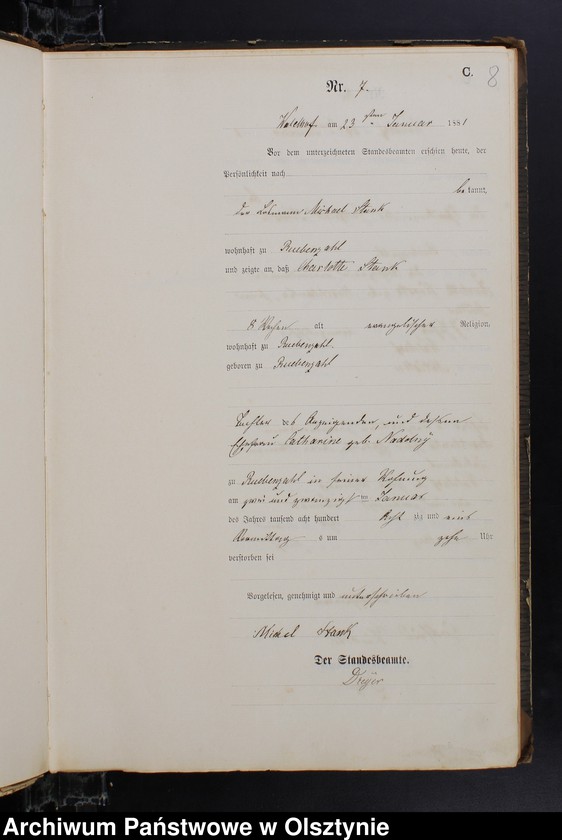 C. 8
Nr. 7.
am 23 sten Januar 1881
Vor dem unterzeichneten Standesbeamten erschien heute, der
Persönlichkeit nach
be kannt,
der Losmann Michael Stank
wohnhaft zu Ruebenzahl
und zeigte an, daß Charlotte Stank
8 Wochen alt evangelischer Religion,
wohnhaft zu Ruebenzahl
geboren zu Ruebenzahl
Tochter des Anzeigenden, und dessen
Ehefrau Catharine geb. Nadolny
zu Ruebenzahl in seiner Wohnung
am zwei und zwanzigsten Januar
des Jahres tausend acht hundert acht zig und eins
Vormittags um zehn Uhr
verstorben sei
Vorgelesen, genehmigt und unterschrieben
Michel Stank
Der Standesbeamte.
Archiwum Państwowe w Olsztynie